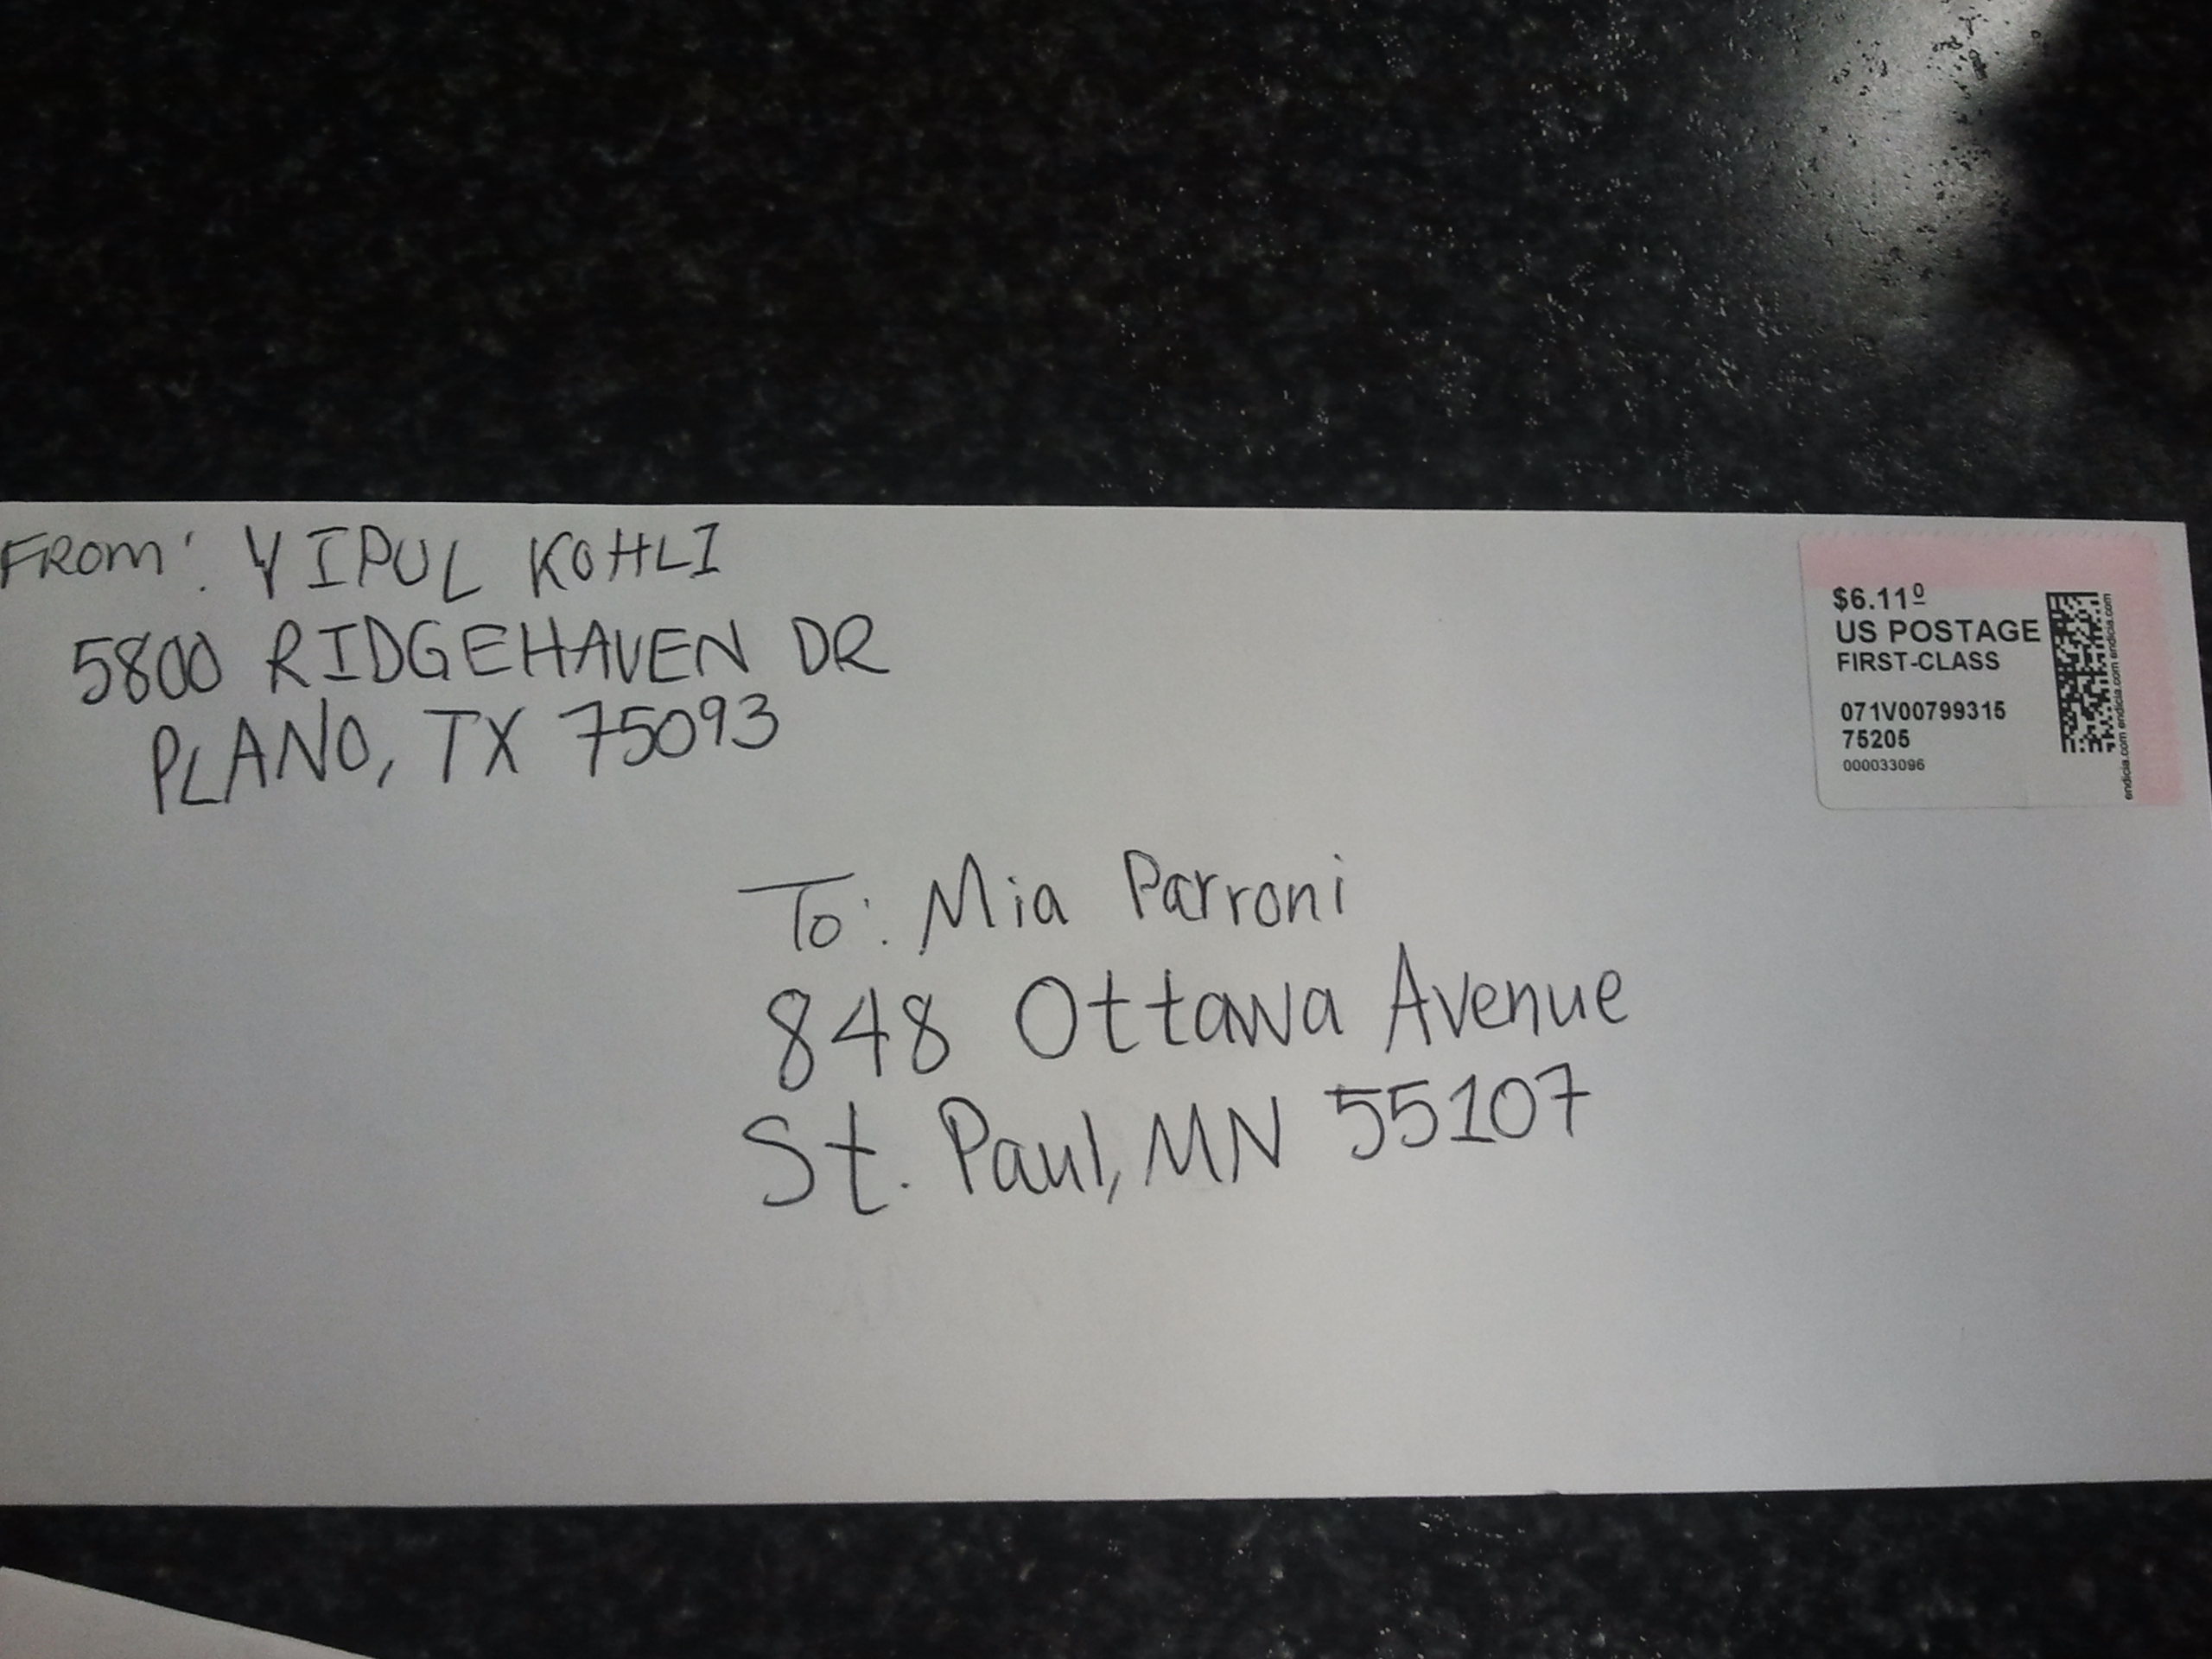 FROM: VIPUL KOHLI
5800 RIDGEHAVEN DR
PLANO, TX 75093
$6.11⁰
US POSTAGE
FIRST-CLASS
071V00799315
75205
000033096
endicia.com endicia.com endicia.com
To: Mia Parroni
848 Ottawa Avenue
St. Paul, MN 55107